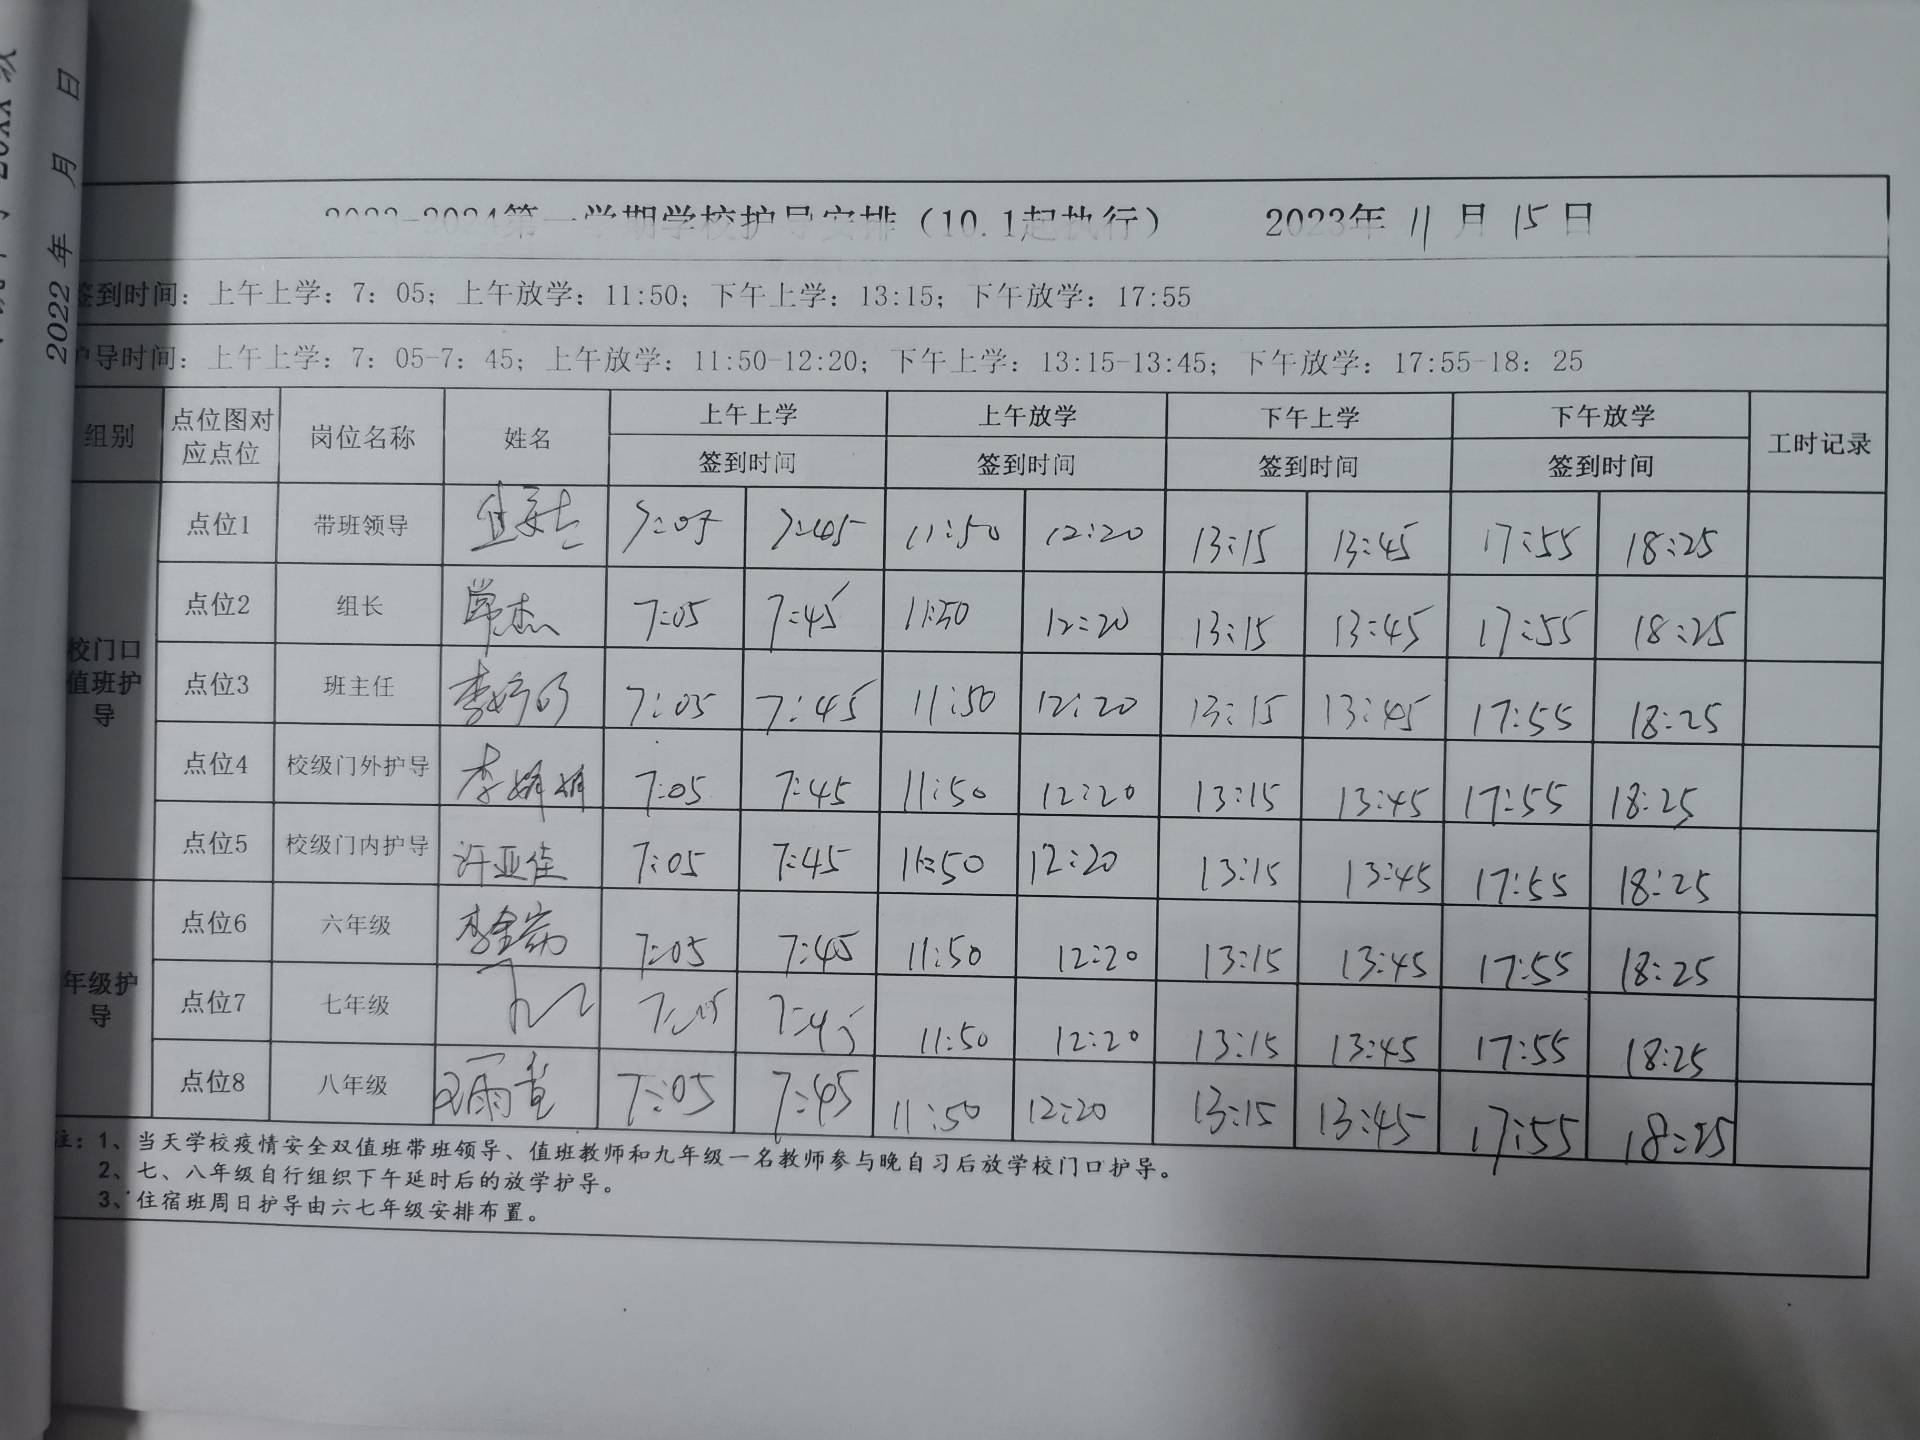 2022年 月 日
2023-2024第一学期学校护导安排（10.1起执行） 2023年 11 月 15 日
签到时间：上午上学：7：05；上午放学：11:50；下午上学：13:15；下午放学：17:55
护导时间：上午上学：7：05-7：45；上午放学：11:50-12:20；下午上学：13:15-13:45；下午放学：17:55-18：25
组别 点位图对应点位 岗位名称 姓名 上午上学 上午放学 下午上学 下午放学 工时记录
签到时间 签到时间 签到时间 签到时间
校门口值班护导
点位1 带班领导 7:05 7:45 11:50 12:20 13:15 13:45 17:55 18:25
点位2 组长 常杰 7:05 7:45 11:50 12:20 13:15 13:45 17:55 18:25
点位3 班主任 7:05 7:45 11:50 12:20 13:15 13:45 17:55 18:25
点位4 校级门外护导 李娟娟 7:05 7:45 11:50 12:20 13:15 13:45 17:55 18:25
点位5 校级门内护导 许亚佳 7:05 7:45 11:50 12:20 13:15 13:45 17:55 18:25
年级护导
点位6 六年级 7:05 7:45 11:50 12:20 13:15 13:45 17:55 18:25
点位7 七年级 7:05 7:45 11:50 12:20 13:15 13:45 17:55 18:25
点位8 八年级 7:05 7:45 11:50 12:20 13:15 13:45 17:55 18:25
注：1、当天学校疫情安全双值班带班领导、值班教师和九年级一名教师参与晚自习后放学校门口护导。
2、七、八年级自行组织下午延时后的放学护导。
3、住宿班周日护导由六七年级安排布置。